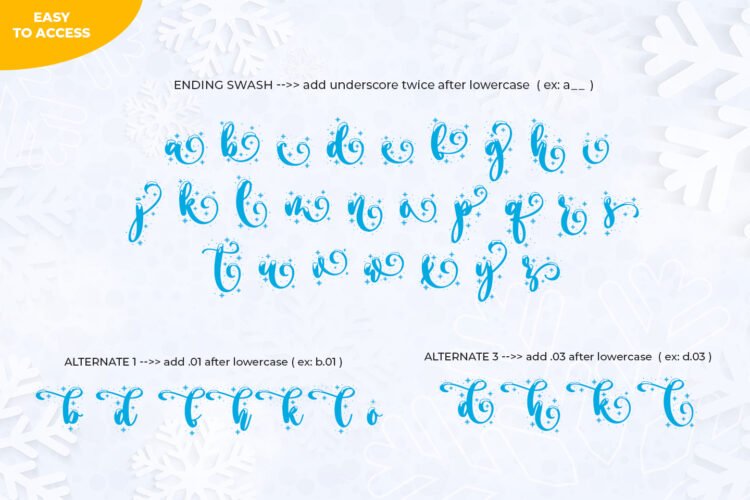 EASY
TO ACCESS
ENDING SWASH -->> add underscore twice after lowercase ( ex: a__ )
a b c d e f g h i
j k l m n a p q r s
t u v w x y z
ALTERNATE 1 -->> add .01 after lowercase ( ex: b.01 )
b d f h k l o
ALTERNATE 3 -->> add .03 after lowercase ( ex: d.03 )
d h k l